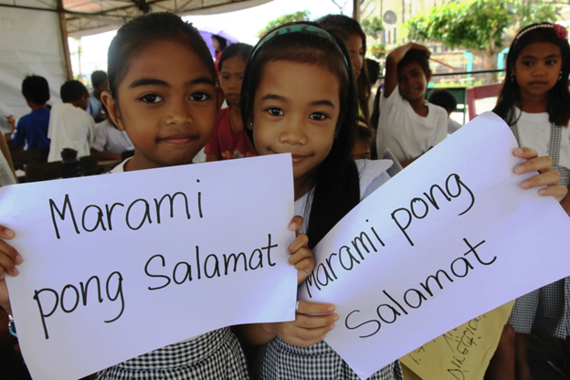 Marami
pong Salamat
Marami pong
Salamat